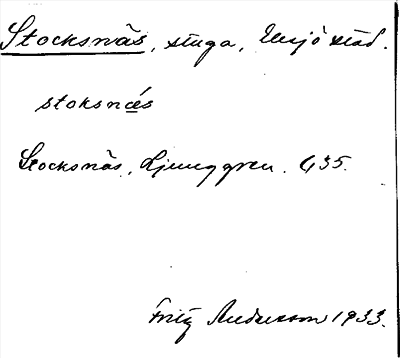 Stocksnäs, stuga, Eksjö stad.
stoksnä́s
Stocksnäs, Ljunggren. 635.
Fritz Andersson 1933.